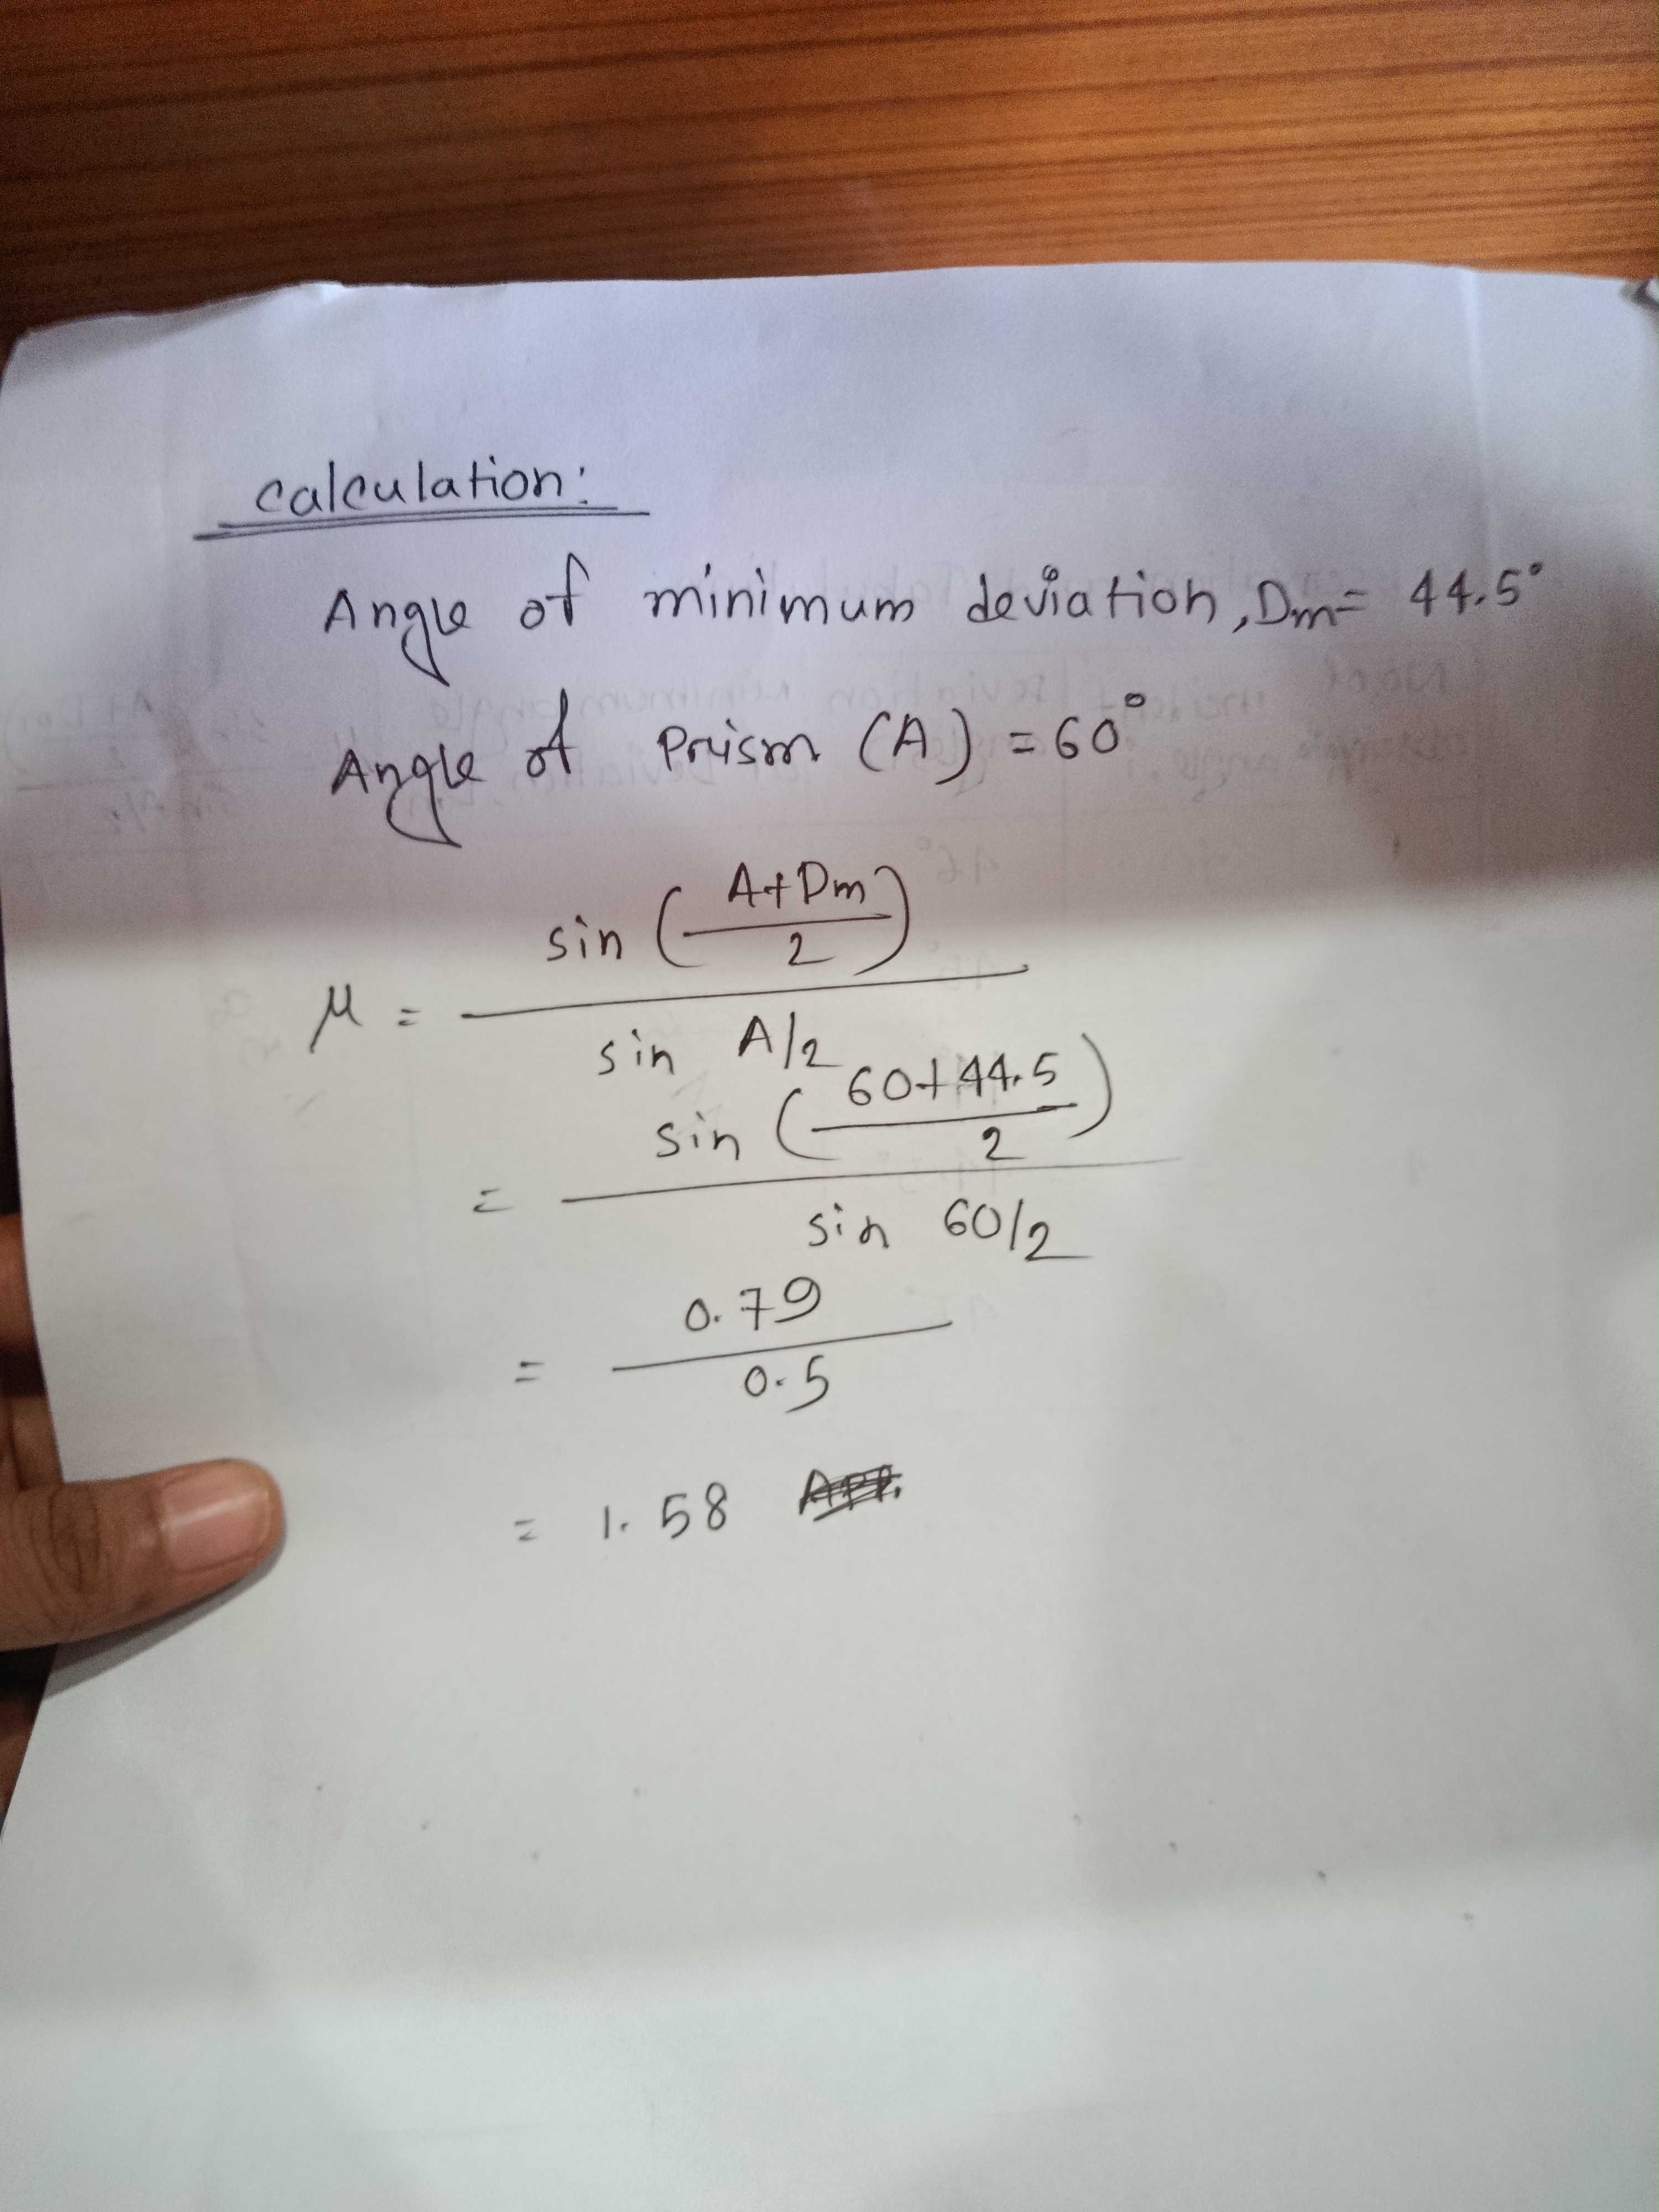 calculation:
Angle of minimum deviation, Dm= 44.5°
Angle of Prism (A) = 60°
μ = sin (A+Dm/2) / sin A/2
= sin (60+44.5/2) / sin 60/2
= 0.79/0.5
= 1.58